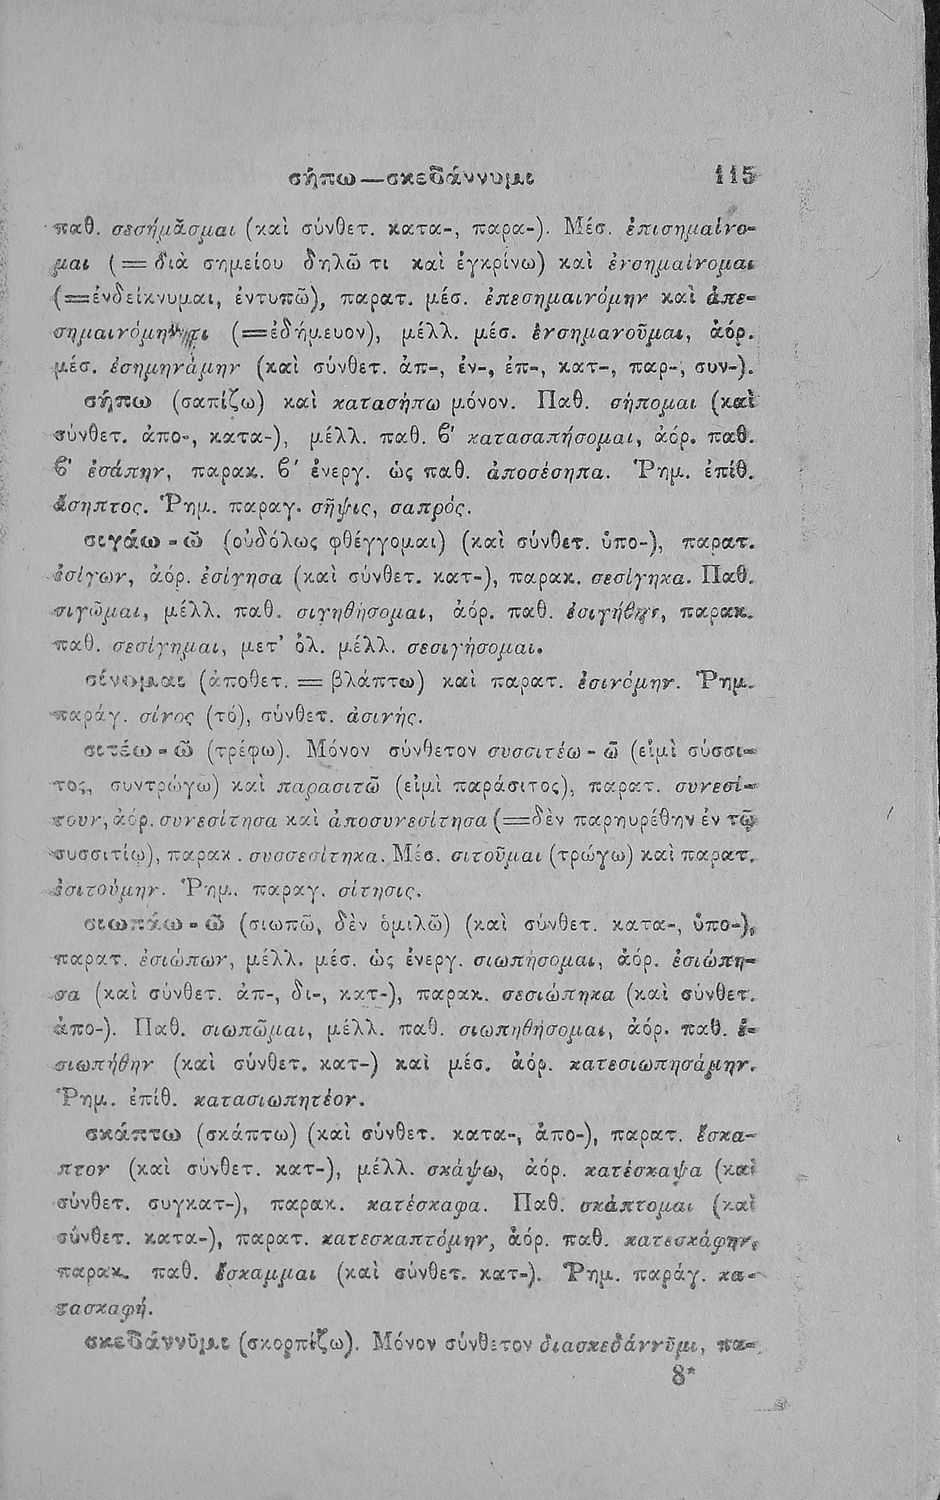 σήπω—σκεδάννυμι 115
παθ. σεσήμᾰσμαι (καὶ σύνθετ. κατα-, παρα-). Μέσ. ἐπισημαίνο-
μαι (=διὰ σημείου δηλῶ τι καὶ ἐγκρίνω) καὶ ἐνσημαίνομαι
(=ἐνδείκνυμαι, ἐντυπῶ), παρατ. μέσ. ἐπεσημαινόμην καὶ ἀπε-
σημαινόμην τι (=ἐδήμευον), μέλλ. μέσ. ἐνσημανοῦμαι, ἀόρ.
μέσ. ἐσημηνάμην (καὶ σύνθετ. ἀπ-, ἐν-, ἐπ-, κατ-, παρ-, συν-).
σήπω (σαπίζω) καὶ κατασήπω μόνον. Παθ. σήπομαι (καὶ
σύνθετ. ἀπο-, κατα-), μέλλ. παθ. β΄ κατασαπήσομαι, ἀόρ. παθ.
β΄ ἐσάπην, παρακ. β΄ ἐνεργ. ὡς παθ. ἀποσέσηπα. Ῥημ. ἐπίθ.
ἄσηπτος. Ῥημ. παραγ. σῆψις, σαπρός.
σιγάω-ῶ (οὐδόλως φθέγγομαι) (καὶ σύνθετ. ὑπο-), παρατ.
ἐσίγων, ἀόρ. ἐσίγησα (καὶ σύνθετ. κατ-), παρακ. σεσίγηκα. Παθ.
σιγῶμαι, μέλλ. παθ. σιγηθήσομαι, ἀόρ. παθ. ἐσιγήθην, παρακ.
παθ. σεσίγημαι, μετ' ὀλ. μέλλ. σεσιγήσομαι.
σίνομαι (ἀποθετ. = βλάπτω) καὶ παρατ. ἐσινόμην. Ῥημ.
παράγ. σίνος (τό), σύνθετ. ἀσινής.
σιτέω-ῶ (τρέφω). Μόνον σύνθετον συσσιτέω-ῶ (εἰμὶ σύσσι-
τος, συντρώγω) καὶ παρασιτῶ (εἰμὶ παράσιτος), παρατ. συνεσί-
τουν, ἀόρ. συνεσίτησα καὶ ἀποσυνεσίτησα (=δὲν παρηυρέθην ἐν τῷ
συσσιτίῳ), παρακ. συσσεσίτηκα. Μέσ. σιτοῦμαι (τρώγω) καὶ παρατ.
ἐσιτούμην. Ῥημ. παραγ. σίτησις.
σιωπάω-ῶ (σιωπῶ, δὲν ὁμιλῶ) (καὶ σύνθετ. κατα-, ὑπο-),
παρατ. ἐσιώπων, μέλλ. μέσ. ὡς ἐνεργ. σιωπήσομαι, ἀόρ. ἐσιώπη-
σα (καὶ σύνθετ. ἀπ-, δι-, κατ-), παρακ. σεσιώπηκα (καὶ σύνθετ.
ἀπο-). Παθ. σιωπῶμαι, μέλλ. παθ. σιωπηθήσομαι, ἀόρ. παθ. ἐ-
σιωπήθην (καὶ σύνθετ. κατ-) καὶ μέσ. ἀόρ. κατεσιωπησάμην.
Ῥημ. ἐπίθ. κατασιωπητέον.
σκάπτω (σκάπτω) (καὶ σύνθετ. κατα-, ἀπο-), παρατ. ἔσκα-
πτον (καὶ σύνθετ. κατ-), μέλλ. σκάψω, ἀόρ. κατέσκαψα (καὶ
σύνθετ. συγκατ-), παρακ. κατέσκαφα. Παθ. σκάπτομαι (καὶ
σύνθετ. κατα-), παρατ. κατεσκαπτόμην, ἀόρ. παθ. κατεσκάφην,
παρακ. παθ. ἔσκαμμαι (καὶ σύνθετ. κατ-). Ῥημ. παράγ. κα-
τασκαφή.
σκεδάννῡμι (σκορπίζω). Μόνον σύνθετον διασκεδάννῡμι, πα-
8*